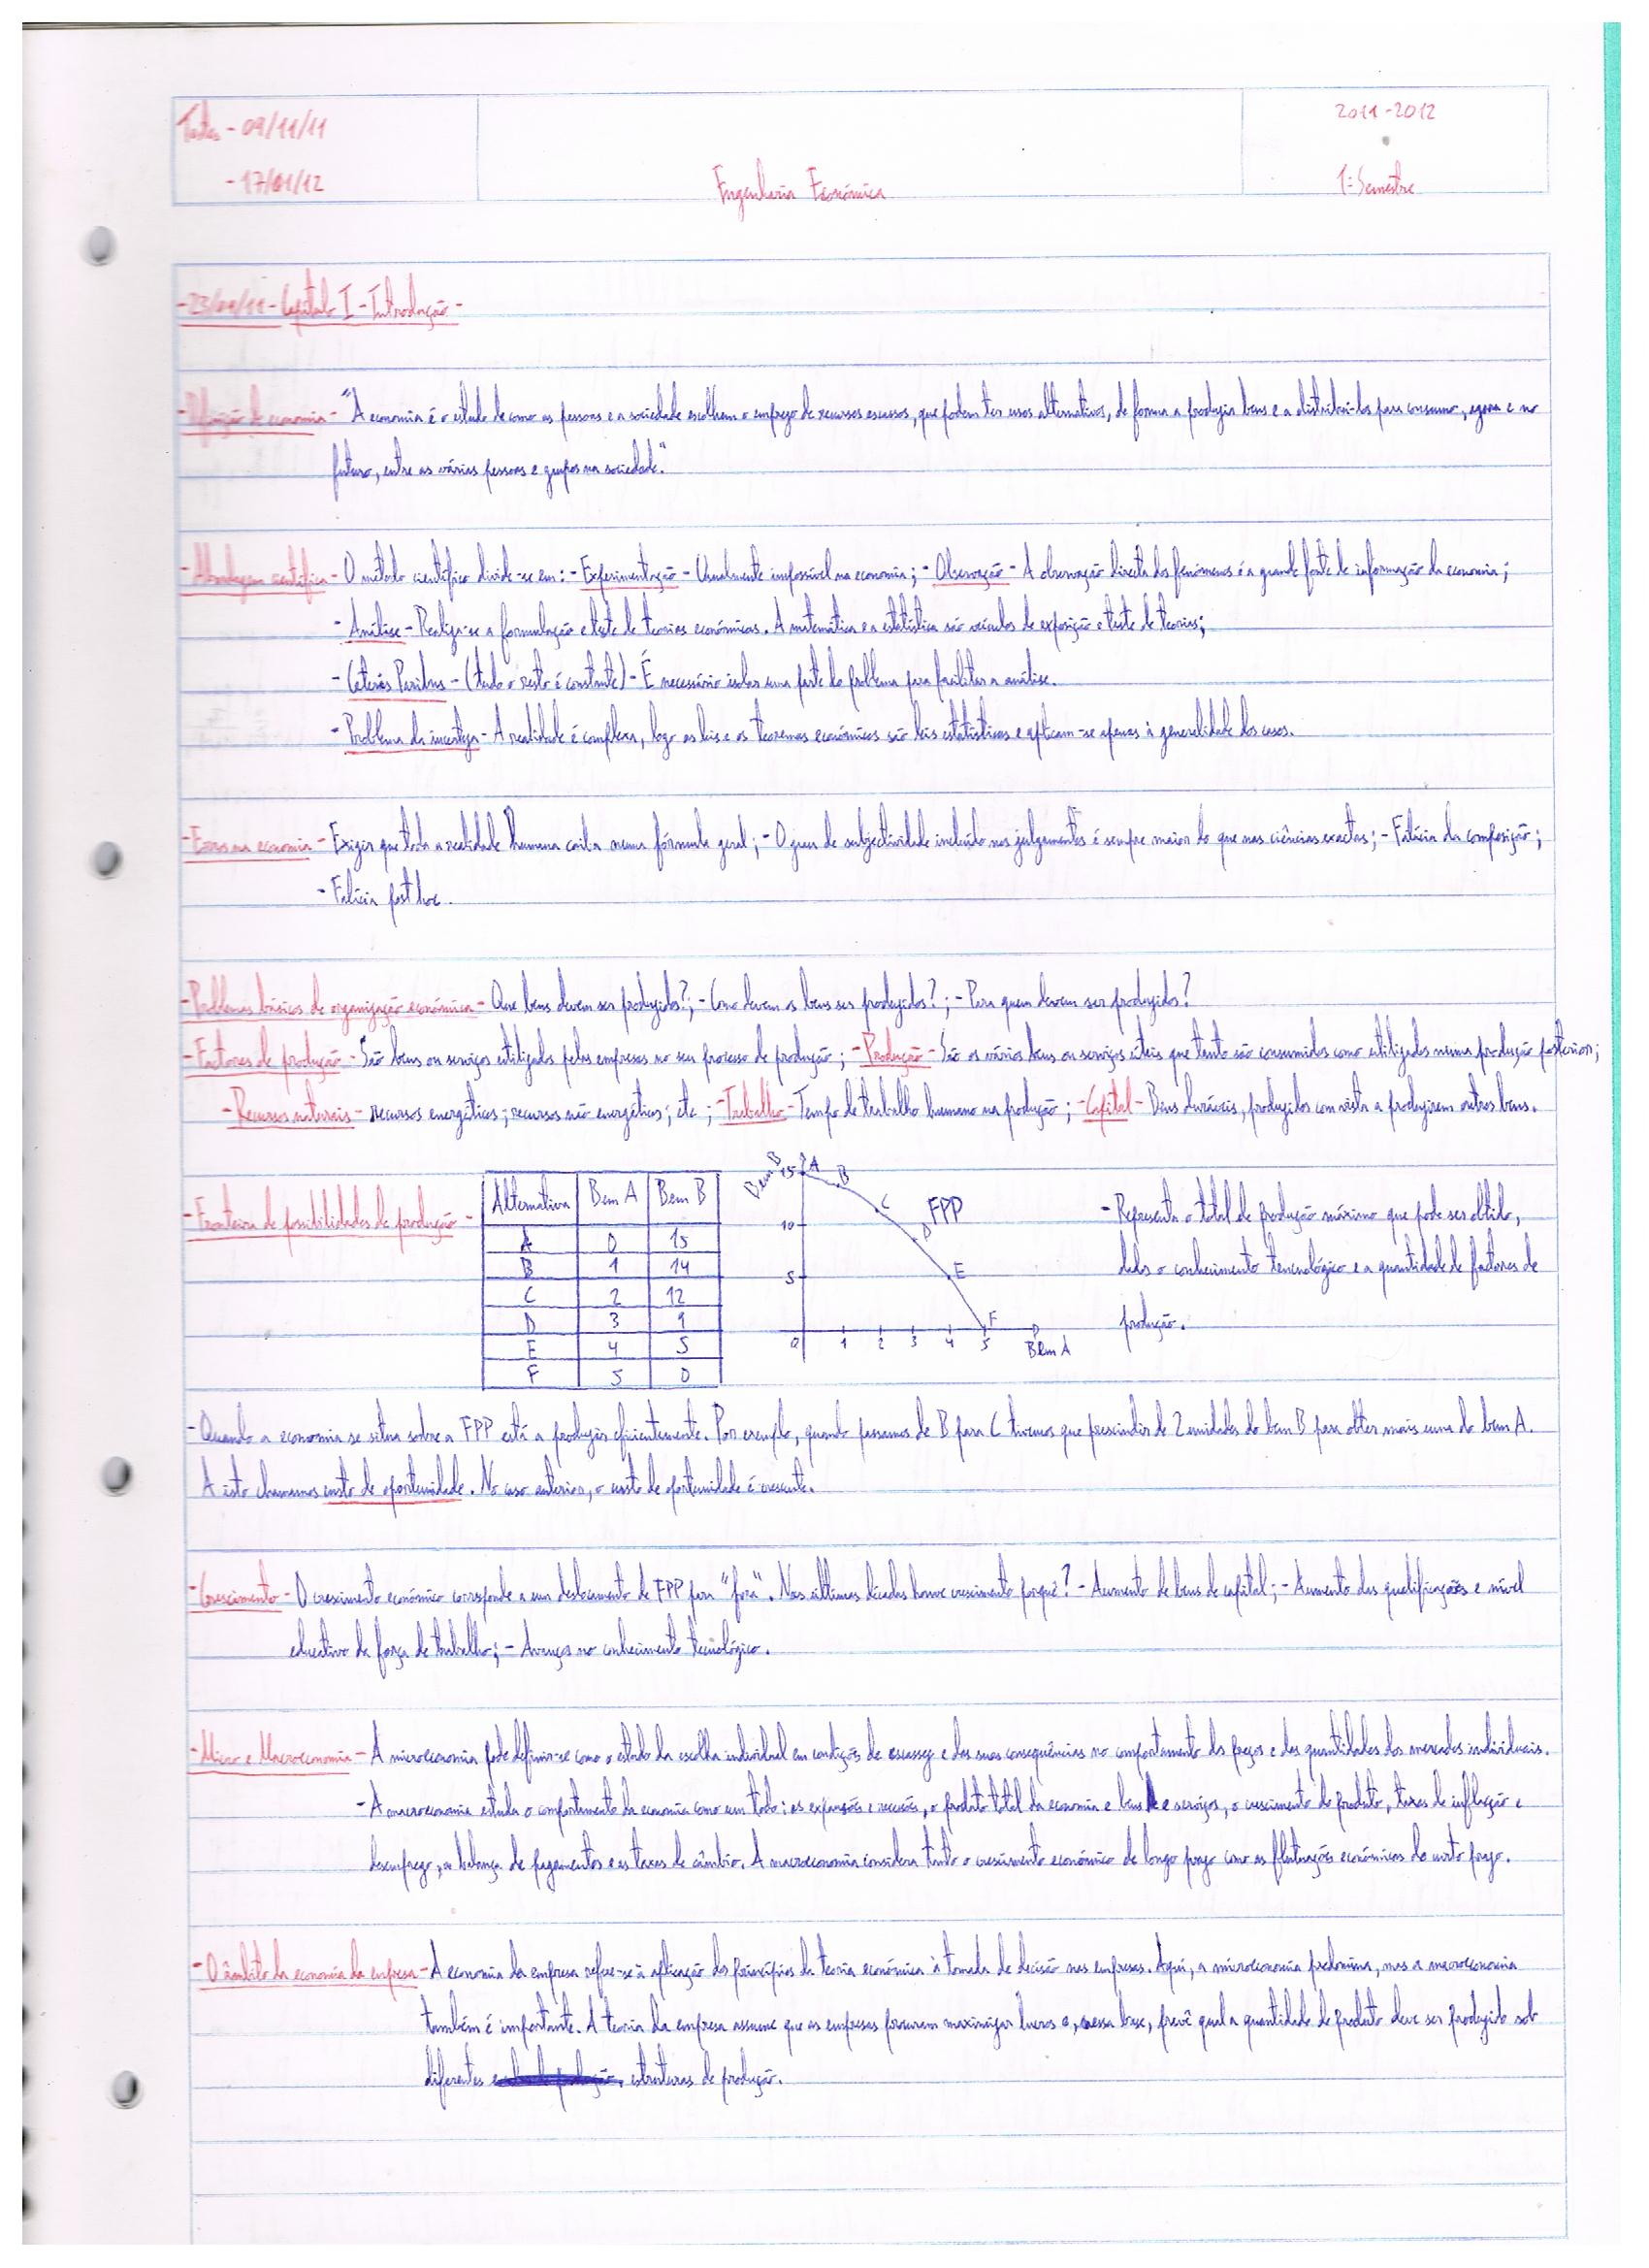 Testes - 09/11/11
2011-2012
- 17/01/12
Engenharia Económica
1º Semestre
- 23/09/11 - Capítulo I - Introdução -
- Definição de economia - "A economia é o estudo de como as pessoas e a sociedade escolhem o emprego de recursos escassos, que podem ter usos alternativos, de forma a produzir bens e a distribuí-los para consumo, agora e no
futuro, entre as várias pessoas e grupos na sociedade."
- Abordagem científica - O método científico divide-se em: - Experimentação - Usualmente impossível na economia; - Observação - A observação directa dos fenómenos é a grande fonte de informação da economia;
- Análise - Realiza-se a formulação e teste de teorias económicas. A matemática e a estatística são veículos de exposição e teste de teorias;
- Ceteris Paribus - (tudo o resto é constante) - É necessário isolar uma parte do problema para facilitar a análise.
- Problema da incerteza - A realidade é complexa, logo as leis e os teoremas económicos são leis estatísticas e aplicam-se apenas à generalidade dos casos.
- Erros na economia - Exigir que toda a realidade humana caiba numa fórmula geral; - O grau de subjectividade incluído nos julgamentos é sempre maior do que nas ciências exactas; - Falácia da composição;
- Falácia post hoc.
- Problemas básicos de organização económica - Que bens devem ser produzidos?; - Como devem os bens ser produzidos?; - Para quem devem ser produzidos?
- Factores de produção - São bens ou serviços utilizados pelas empresas no seu processo de produção; - Produção - São os vários bens ou serviços úteis que tanto são consumidos como utilizados numa produção posterior;
- Recursos naturais - recursos energéticos; recursos não energéticos; etc; - Trabalho - Tempo de trabalho humano na produção; - Capital - Bens duráveis, produzidos com vista a produzirem outros bens.
- Fronteira de possibilidades de produção -
Alternativa Bem A Bem B
A 0 15
B 1 14
C 2 12
D 3 9
E 4 5
F 5 0
Bem B
15 A B
C
FPP
10 D
5 E
F
0 1 2 3 4 5 Bem A
- Representa o total de produção máximo que pode ser obtido,
dados o conhecimento tencnológico e a quantidade de factores de
produção.
- Quando a economia se situa sobre a FPP está a produzir eficientemente. Por exemplo, quando passamos de B para C tivemos que prescindir de 2 unidades do bem B para obter mais uma do bem A.
A isto chamamos custo de oportunidade. No caso anterior, o custo de oportunidade é crescente.
- Crescimento - O crescimento económico corresponde a um deslocamento de FPP para "fora". Nas últimas décadas houve crescimento porquê? - Aumento de bens de capital; - Aumento das qualificações e nível
educativo da força de trabalho; - Avanços no conhecimento tecnológico.
- Micro e Macroeconomia - A microeconomia pode definir-se como o estudo da escolha individual em condições de escassez e das suas consequências no comportamento dos preços e das quantidades dos mercados individuais.
- A macroeconomia estuda o comportamento da economia como um todo: as expansões e recessões, o produto total da economia e bens e serviços, o crescimento do produto, taxas de inflação e
desemprego, a balança de pagamentos e as taxas de câmbio. A macroeconomia considera tanto o crescimento económico de longo prazo como as flutuações económicas do curto prazo.
- O âmbito da economia da empresa - A economia da empresa refere-se à aplicação dos princípios da teoria económica à tomada de decisão nas empresas. Aqui, a microeconomia predomina, mas a macroeconomia
também é importante. A teoria da empresa assume que as empresas procuram maximizar lucros e, nessa base, prevê qual a quantidade de produto deve ser produzido sob
diferentes estruturas de produção.